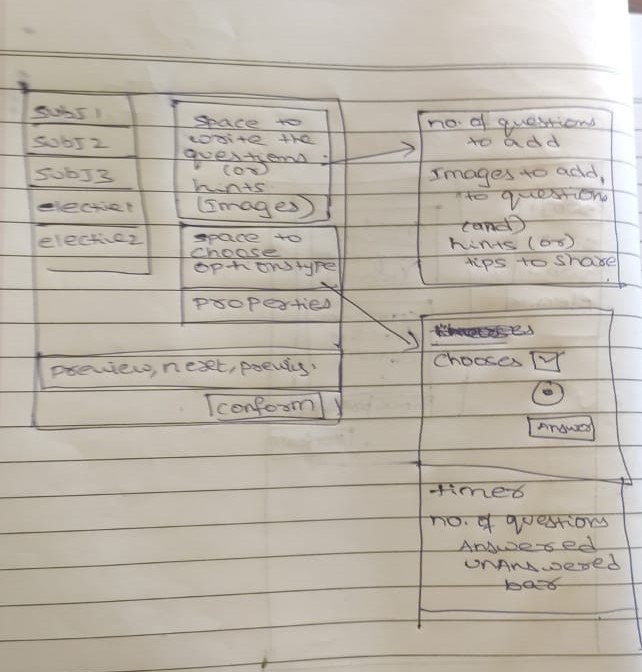 SUBJ 1
SUBJ 2
SUBJ 3
elective1
elective2
space to
write the
questions
(or)
hints
(Images)
space to
choose
options type
properties
preview, next, previs.
conform
no. of questions
to add
Images to add,
to question
(and)
hints (or)
tips to share
chooses
Answer
timer
no. of questions
Answered
unAnswered
bar